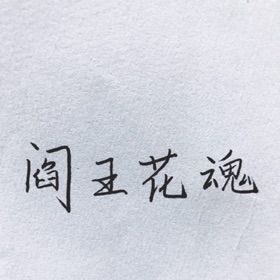 阎王花魂